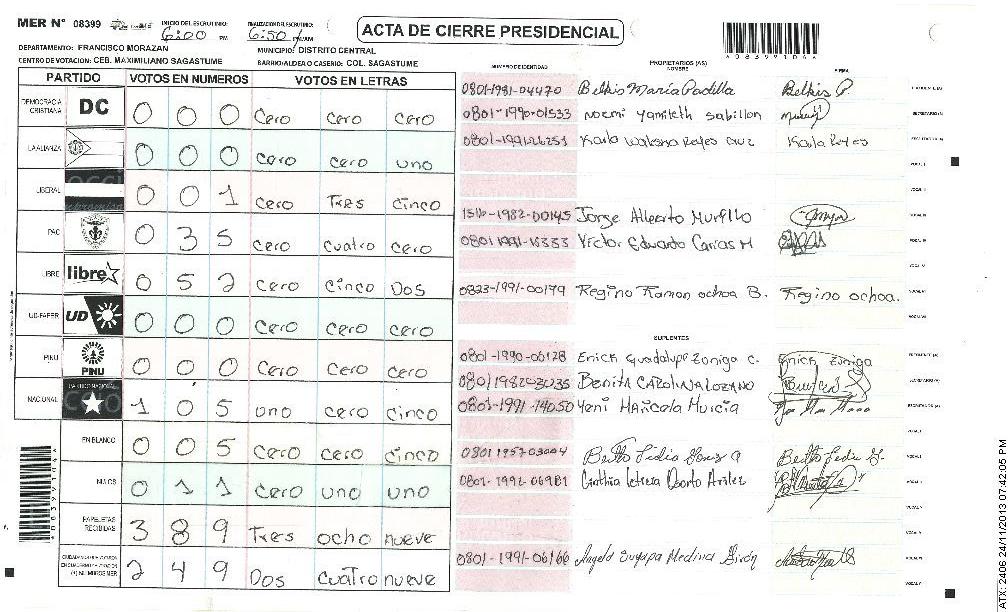 MER N° 08399 INICIO DEL ESCRUTINIO: 6:00 PM FINALIZACION DEL ESCRUTINIO: 6:50 PM/AM ACTA DE CIERRE PRESIDENCIAL
*08399106*
DEPARTAMENTO: FRANCISCO MORAZAN MUNICIPIO: DISTRITO CENTRAL
CENTRO DE VOTACION: CEB. MAXIMILIANO SAGASTUME BARRIO/ALDEA O CASERIO: COL. SAGASTUME
PARTIDO VOTOS EN NUMEROS VOTOS EN LETRAS
DEMOCRACIA CRISTIANA DC 0 0 0 cero cero cero
LA ALIANZA 0 0 0 cero cero uno
LIBERAL 0 0 1 cero Tres cinco
PAC 0 3 5 cero cuatro cero
LIBRE libre 0 5 2 cero cinco Dos
UD-FAPER UD 0 0 0 cero cero cero
PINU PINU 0 0 0 cero cero cero
NACIONAL PARTIDO NACIONAL 1 0 5 uno cero cinco
EN BLANCO 0 0 5 cero cero cinco
NULOS 0 1 1 cero uno uno
PAPELETAS RECIBIDAS 3 8 9 Tres ocho nueve
2 4 9 Dos cuatro nueve
NUMERO DE IDENTIDAD PROPIETARIOS (AS) NOMBRE FIRMA
0801-1981-04470 Belkis Maria Padilla Belkis P.
0801-1990-01533 Noemi Yamileth Sabillon
Karla Reyes
1516-1982-00145 Jorge Alberto Murillo
Victor Eduardo
0823-1991-00179 Regino Ramon ochoa B. Regino ochoa.
SUPLENTES
0801-1990-06128 Erick Guadalupe Zuniga C. Erick Zuniga
Benita CAROLINA LOZANO
0801-1991-14050 Yeni Maricela Murcia
0801 1957-03004
0801-1992-06981
0801-1991-06166
*08399106*
ATX: 2406 24/11/2013 07:42:05 PM